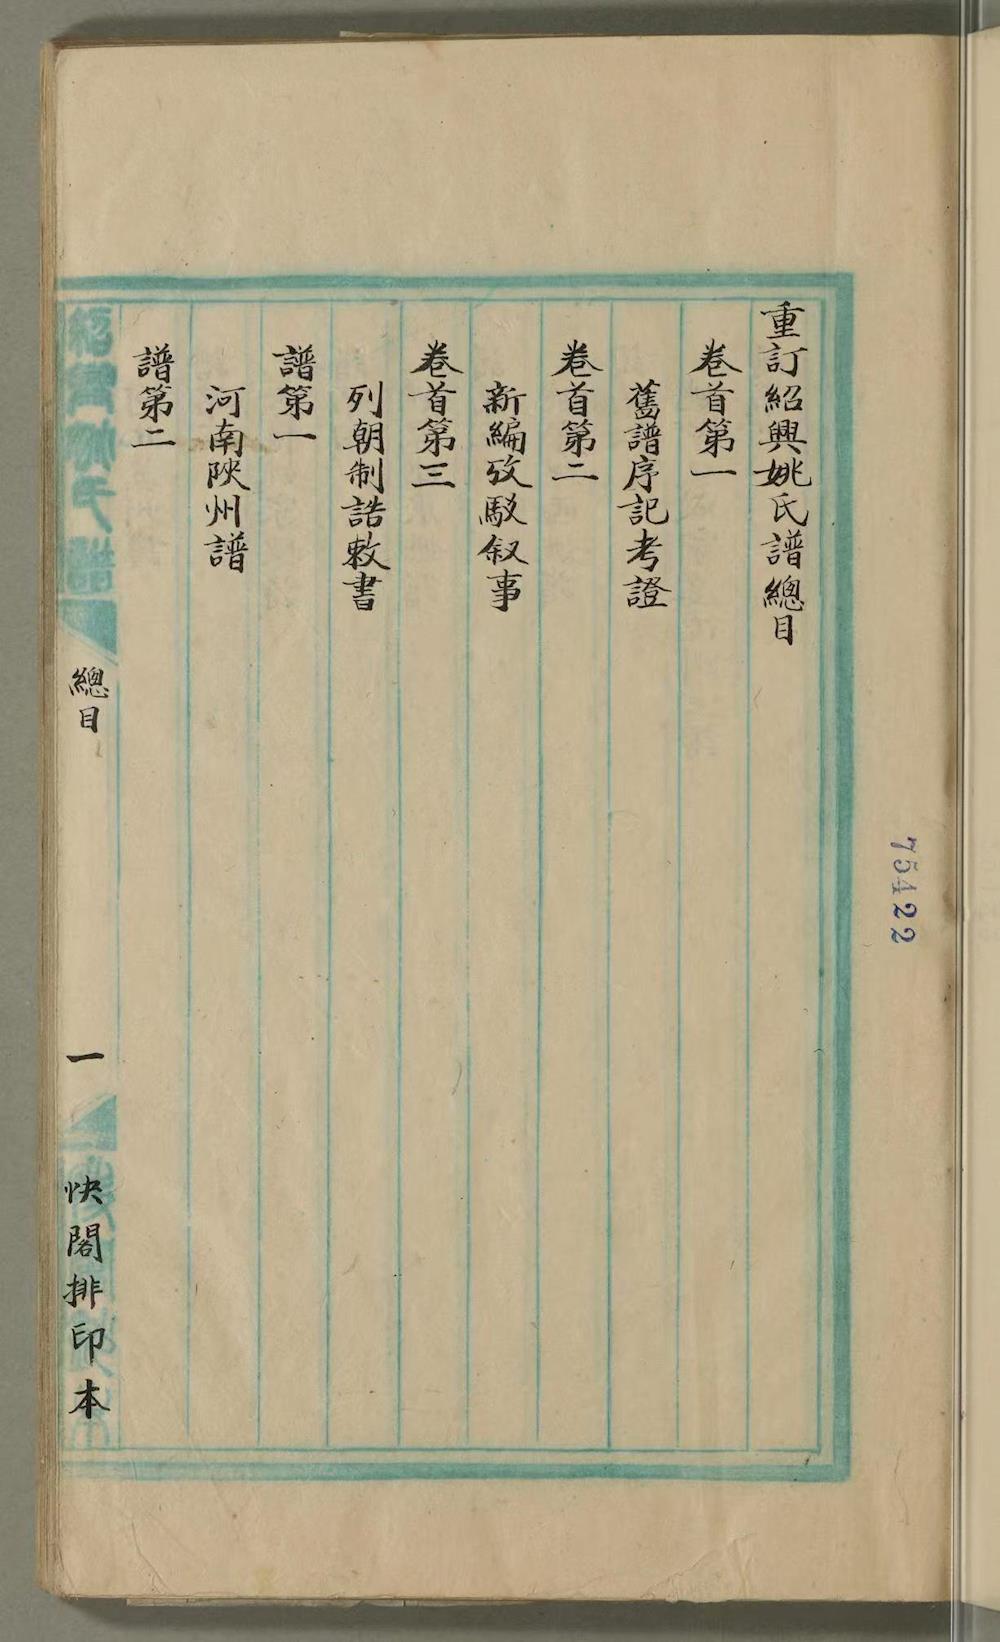 重訂紹興姚氏譜總目
卷首第一
舊譜序記考證
卷首第二
新編攷駁叙事
卷首第三
列朝制誥敕書
譜第一
河南陝州譜
譜第二
總目
一
快閣排印本
75422